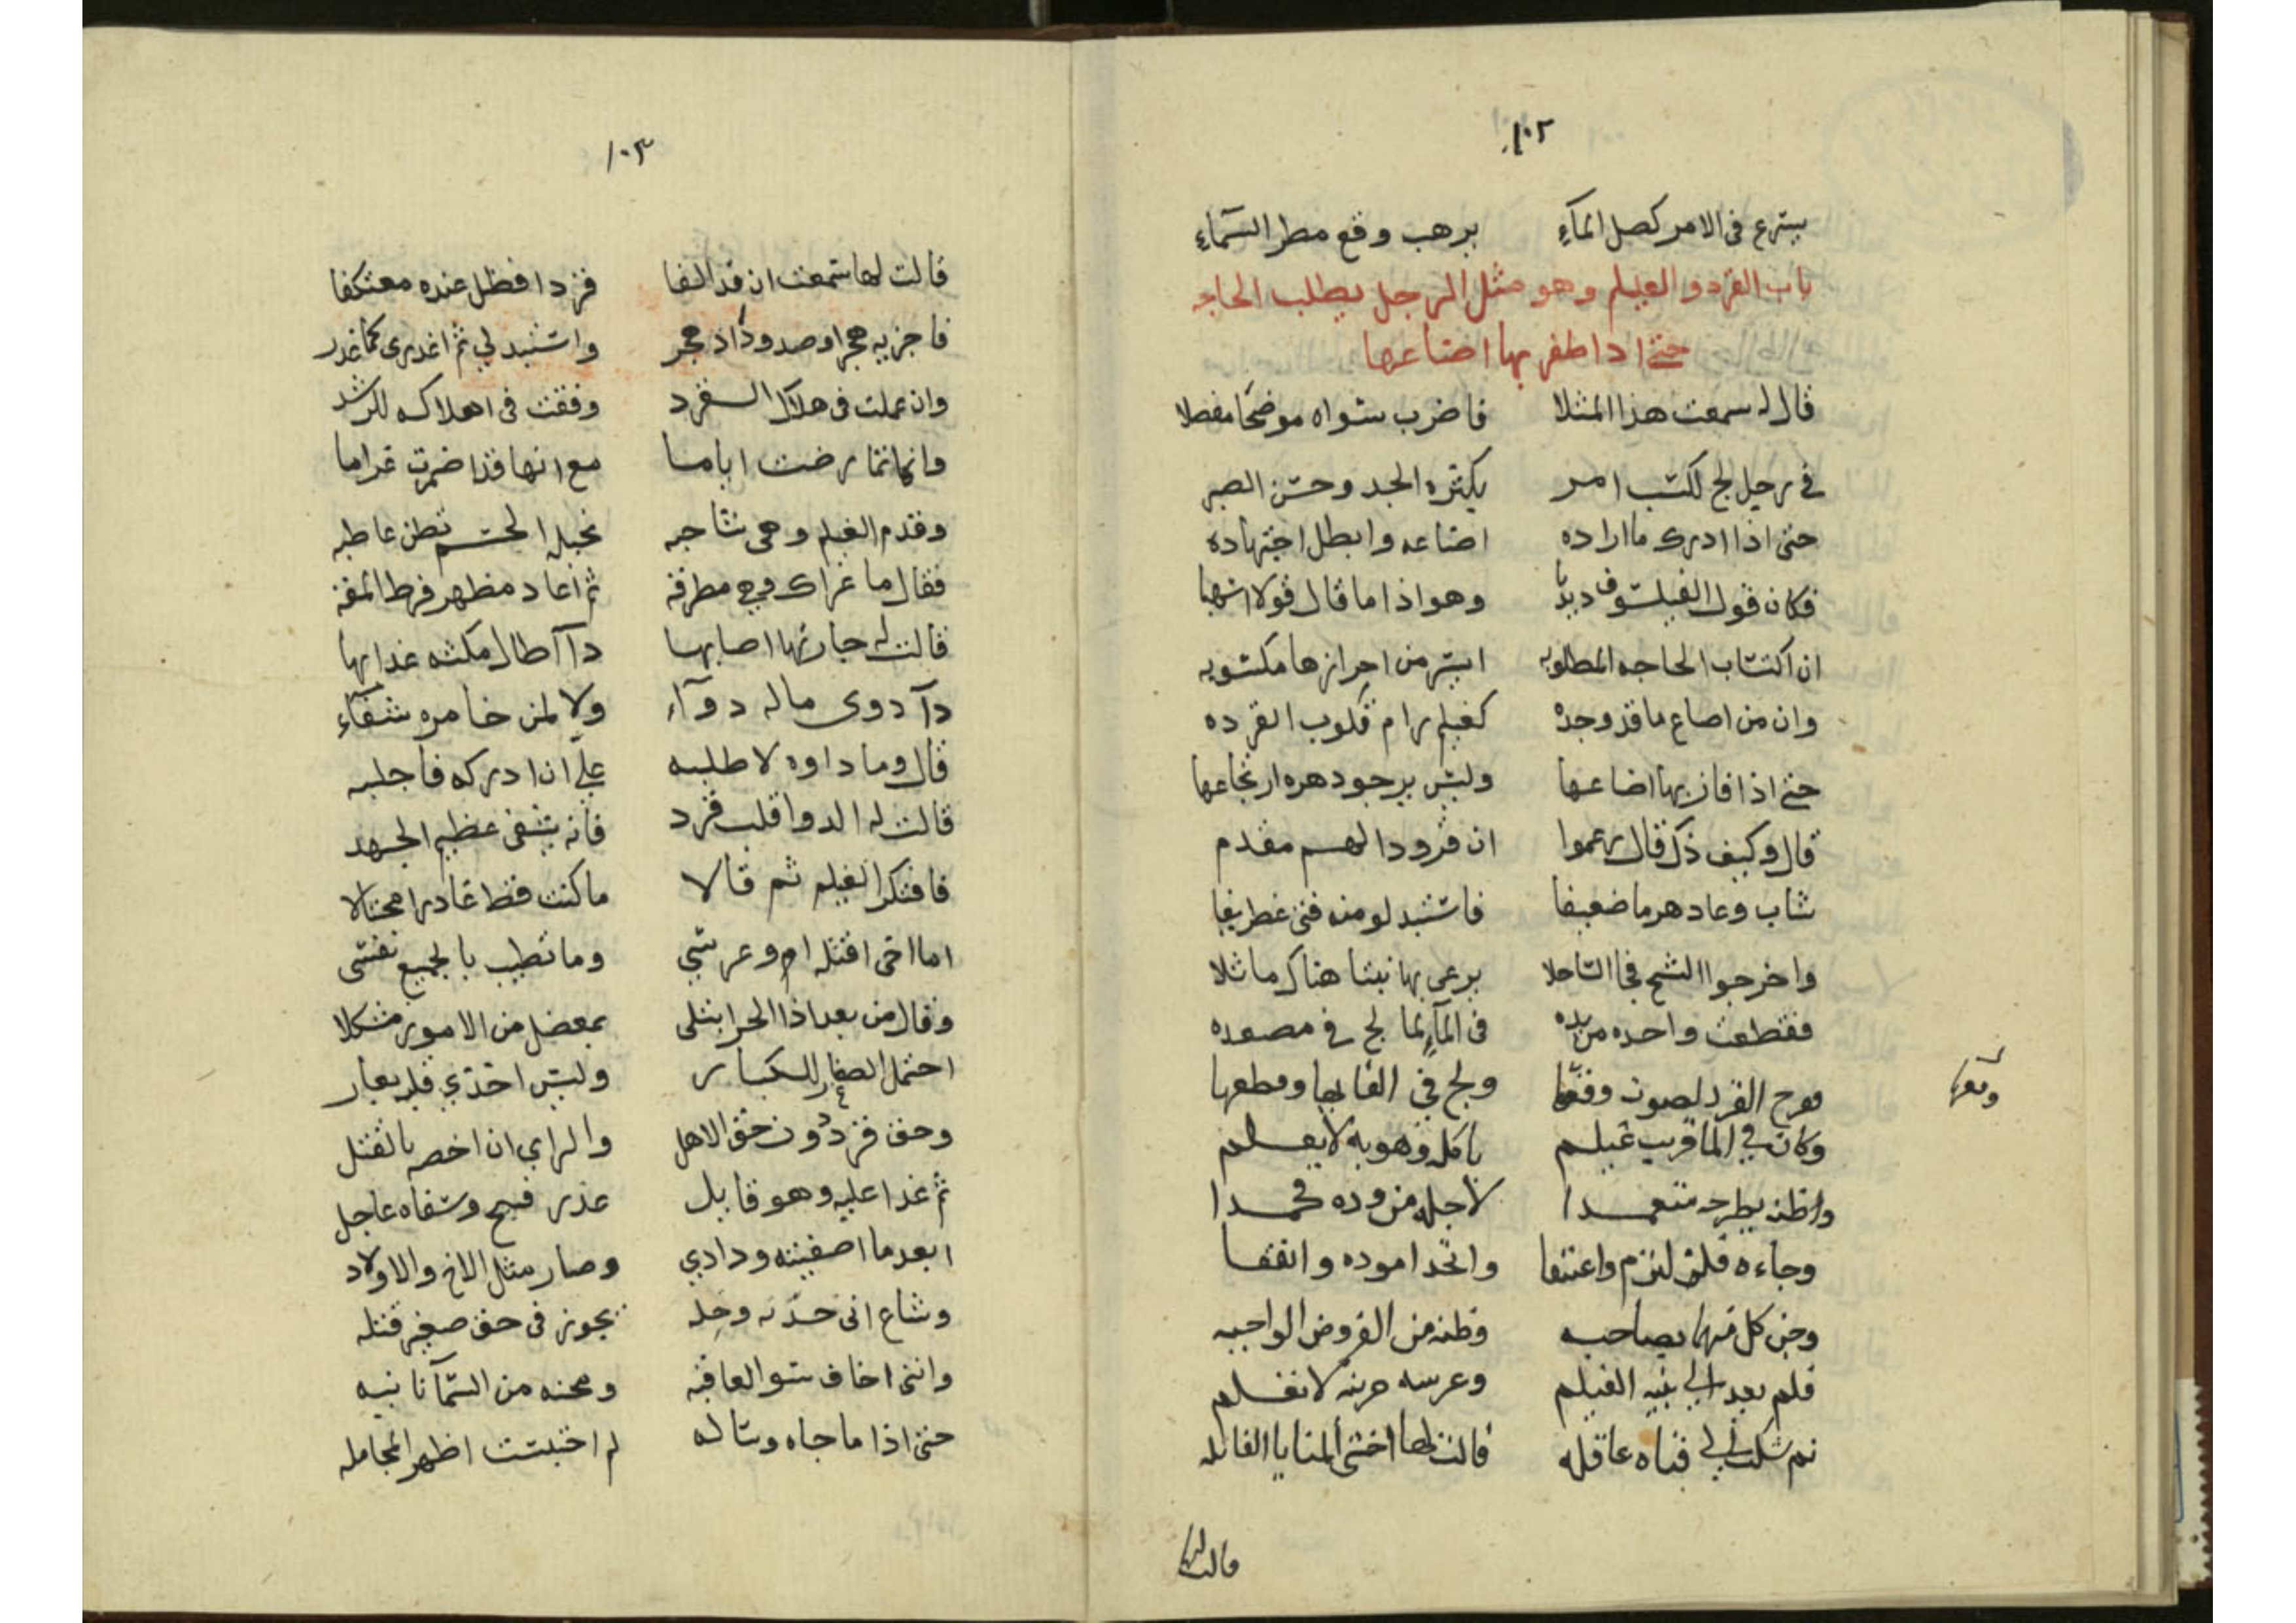 ١٠٢
يسترع فى الامر كصل المآءِ برهب وقع مطر السّمآءِ
باب القرد والغيلم وهو مثل الرجل يطلب الحاجه
حتى اذا ظفر بها اضاعها
قال له سمعت هذا المثلا فاضرب سواه موضحًا مفصلا
فى رجل لج لكسب امر بكثره الجد وحسن الصبر
حتى اذا ادرك ما اراده اضاعه وابطل اجتهاده
فكان قول الفيلسوف دبدبا وهو اذا ما قال قولا اسهبا
ان اكتساب الحاجه المطلوبه ايسر من احرازها مكسوبه
وان من اضاع ما قد وجده كغيلم رام قلوب القرده
حتى اذا فاز بها اضاعها وليس يرجو دهره ارتجاعها
قال وكيف ذك قال زعموا ان قرودا لهم مقدم
شاب وعاد هرما ضعيفا فاستبدلو منه فتى غطريفا
واخرجوا الشيخ فجا الساحلا يرعى بها نبتا هناك ماثلا
فقطعت واحده من يده فى المآءِ لما لج فى مصعده
ففرح القرد لصوت وقعها ولج فى القايها وقطعها
وقعها
وكان فى الما قريب غيلم ياكله وهو به لا يعلم
واظنه يطرحه متعمدا لاجله من وده محمدا
وجاءه فلق لتزم واعتنقا واتحدا موده واتفقا
وحن كل منهما بصاحبه وظنه من الفروض الواجبه
فلم يعد الى بنيه الغيلم وعرسه حزينة لا تعلم
ثم شكت الى فتاه عاقله قالت لها اخشى المنايا القاتله
قالت لها
١٠٣
قالت لها سمعت ان قد الفا قردا فظل عنده معتكفا
فاجزيه هجرا وصدودًا اذ هجر واستبدلي ثم اغدرى كما غدر
وان عملت فى هلاك القرد وفقت فى اهلاكه للرشد
وانها تمارضت اياما مع انها قد اضمرت غراما
وقدم الغيلم وهى شاحبه نحيلة الجسم تظن عاطبه
فقال ما عراك وهى مطرقه ثم اعاد مظهر فرط المقه
قالت له جارتها اصابها دآ اطال مكثه عذابها
دآ دوى ماله دوآء ولا لمن خامره شفآء
قال وما داوه لاطلبه على ان ادركه فاجلبه
قالت له الدوا قلب قرد فانه يشفى عظيم الجهد
فافتكر الغيلم ثم قالا ما كنت قط غادرا محتالا
اما اخى اقتله ام عرسي وما تطيب بالجميع نفسى
وقال من بعد اذا الحر ابتلى بمعضل من الامور مشكلا
احتمل الصغار للكبار وليس اخذي قلبه بعار
وحق قرد دون حق الاهل والراي ان اخصه بالقتل
ثم غدا عليه وهو قايل عذر قبيح وشفاه عاجل
ابعد ما اصفيته ودادي وصار مثل الاخ والاولاد
وشاع انى خدنه وخله يجوز فى حق صغير قتله
واننى اخاف سو العاقبه ومحنه من السمآ نايبه
حتى اذا ما جاه وساله لم احتبست اظهر المجامله